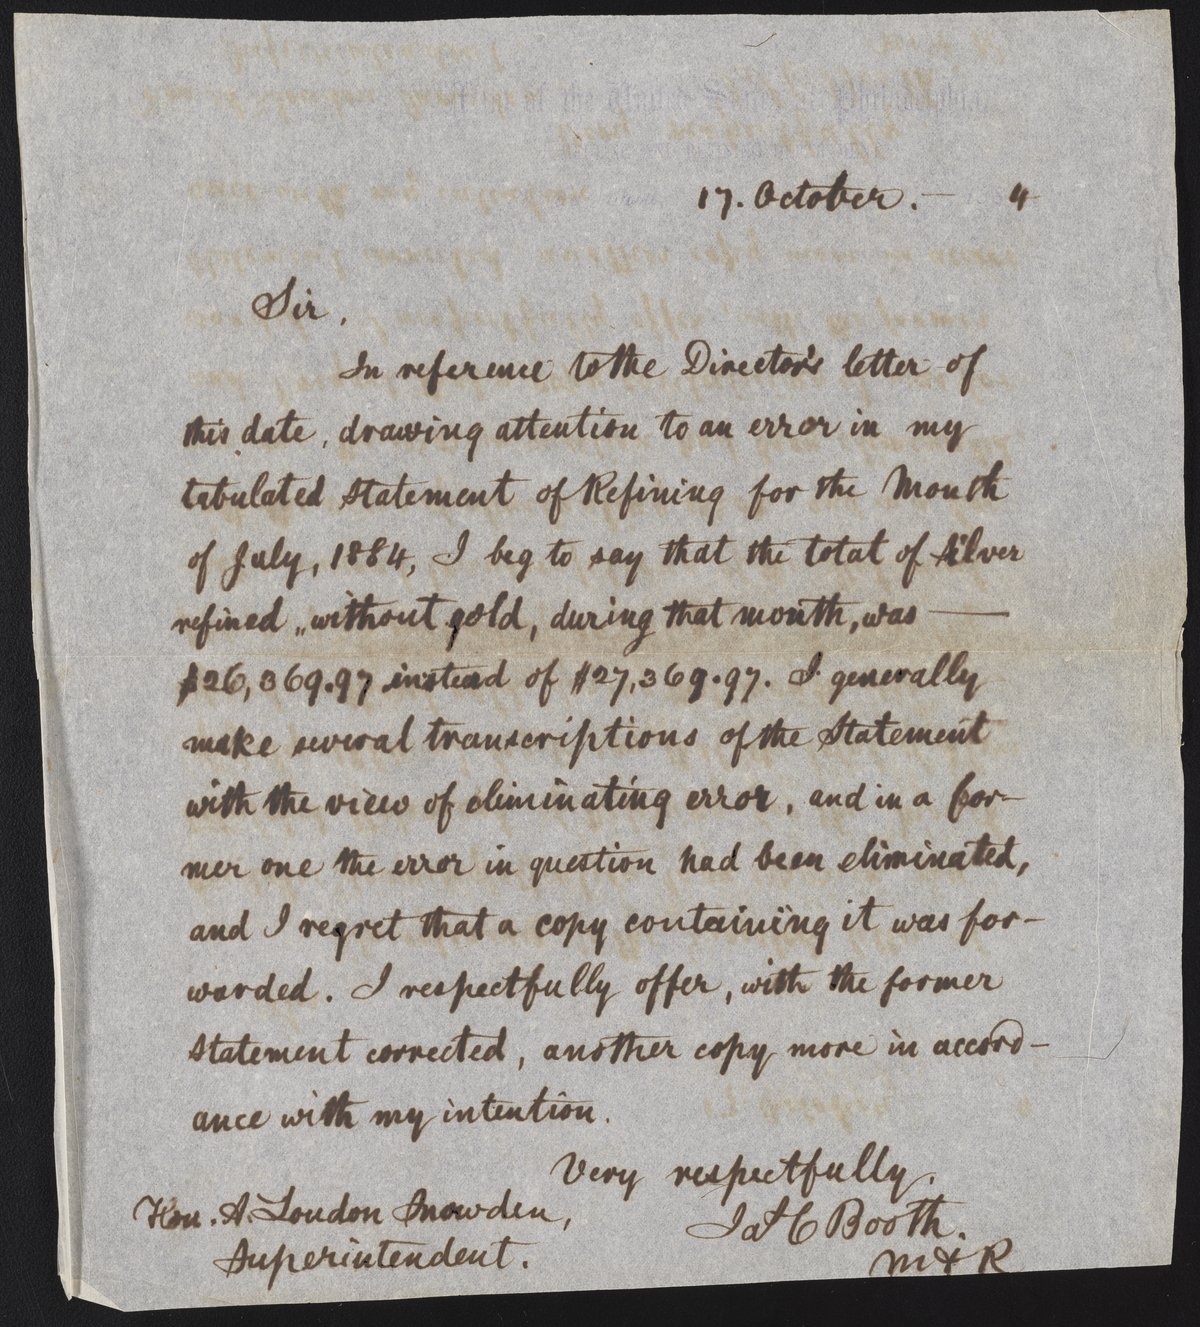 17. October. — 4
Sir,
In reference to the Director's letter of
this date, drawing attention to an error in my
tabulated statement of Refining for the Month
of July, 1884, I beg to say that the total of silver
refined „without gold, during that month, was —
$26,369.97 instead of $27,369.97. I generally
make several transcriptions of the Statement
with the view of eliminating error, and in a for-
mer one the error in question had been eliminated,
and I regret that a copy containing it was for-
warded. I respectfully offer, with the former
statement corrected, another copy more in accord-
ance with my intention.
Very respectfully,
Hon. A. Loudon Snowden,
Superintendent.
Jas C Booth.
M & R